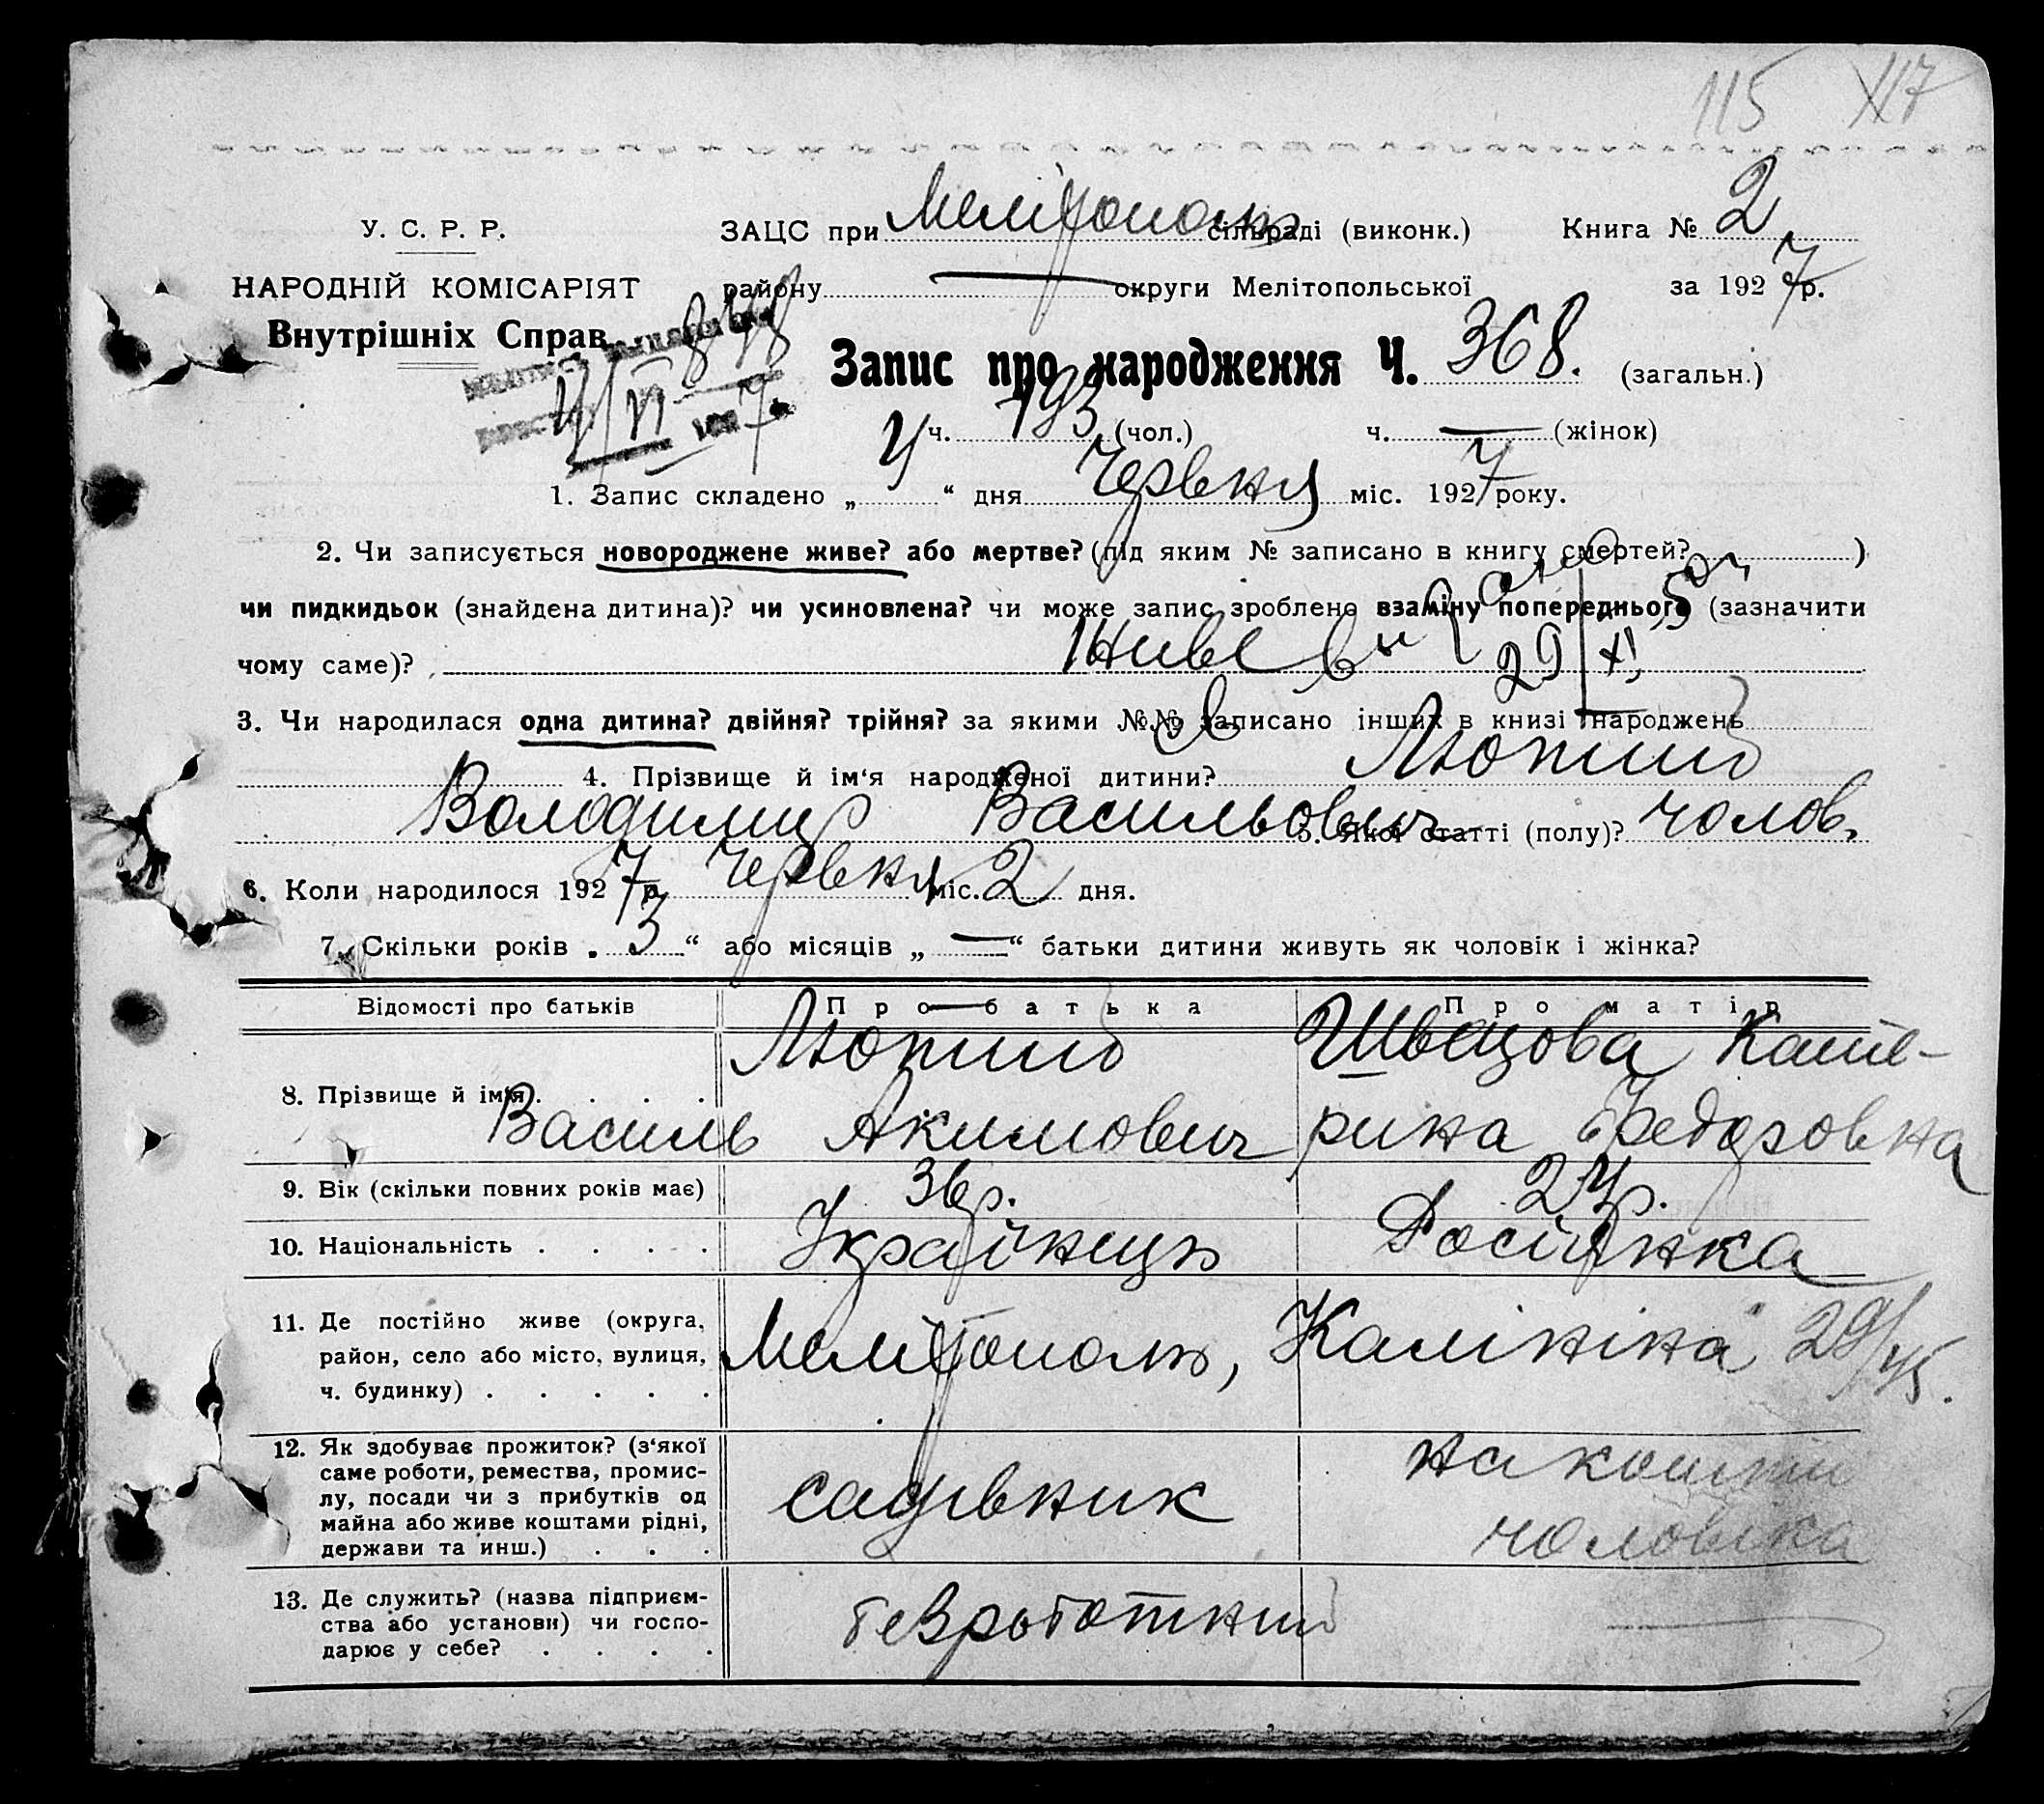 115 117
У. С. Р. Р. ЗАЦС при Мелітополь сільраді (виконк.) Книга № 2
НАРОДНІЙ КОМІСАРІЯТ району — округи Мелітопольської за 1927р.
Внутрішніх Справ 848
Запис про народження Ч. 368. (загальн.)
4/VI 7
ч. 193 (чол.) ч. — (жінок)
1. Запис складено „ 4 “ дня Червня міс. 1927 року.
2. Чи записується новороджене живе? або мертве? (під яким № записано в книгу смертей? )
чи пидкидьок (знайдена дитина)? чи усиновлена? чи може запис зроблено взаміну попереднього (зазначити
чому саме)? Живе 29/XI
3. Чи народилася одна дитина? двійня? трійня? за якими №№ записано інших в книзі народжень
4. Прізвище й ім‘я народженої дитини? Лютий
Володимир Васильович 5. Якої статті (полу)? чолов.
6. Коли народилося 1927 р. Червня міс. 2 дня.
7. Скільки років „ 3 “ або місяців „ — “ батьки дитини живуть як чоловік і жінка?
Відомості про батьків Про батька Про матір
Лютий Швецова Кате-
8. Прізвище й ім‘я . . . .
Василь Акимович рина Федоровна
9. Вік (скільки повних років має) 36 р. 24 р.
10. Національність . . . . Українець Росіянка
11. Де постійно живе (округа,
район, село або місто, вулиця, Мелітополь, Калініна 29/45.
ч. будинку) . . . . .
12. Як здобуває прожиток? (з‘якої
саме роботи, ремества, промис-
лу, посади чи з прибутків од
майна або живе коштами рідні,
держави та инш.) . . .
садівник на кошти
чоловіка
13. Де служить? (назва підприєм-
ства або установи) чи госпо-
дарює у себе? . . . .
безроботний —